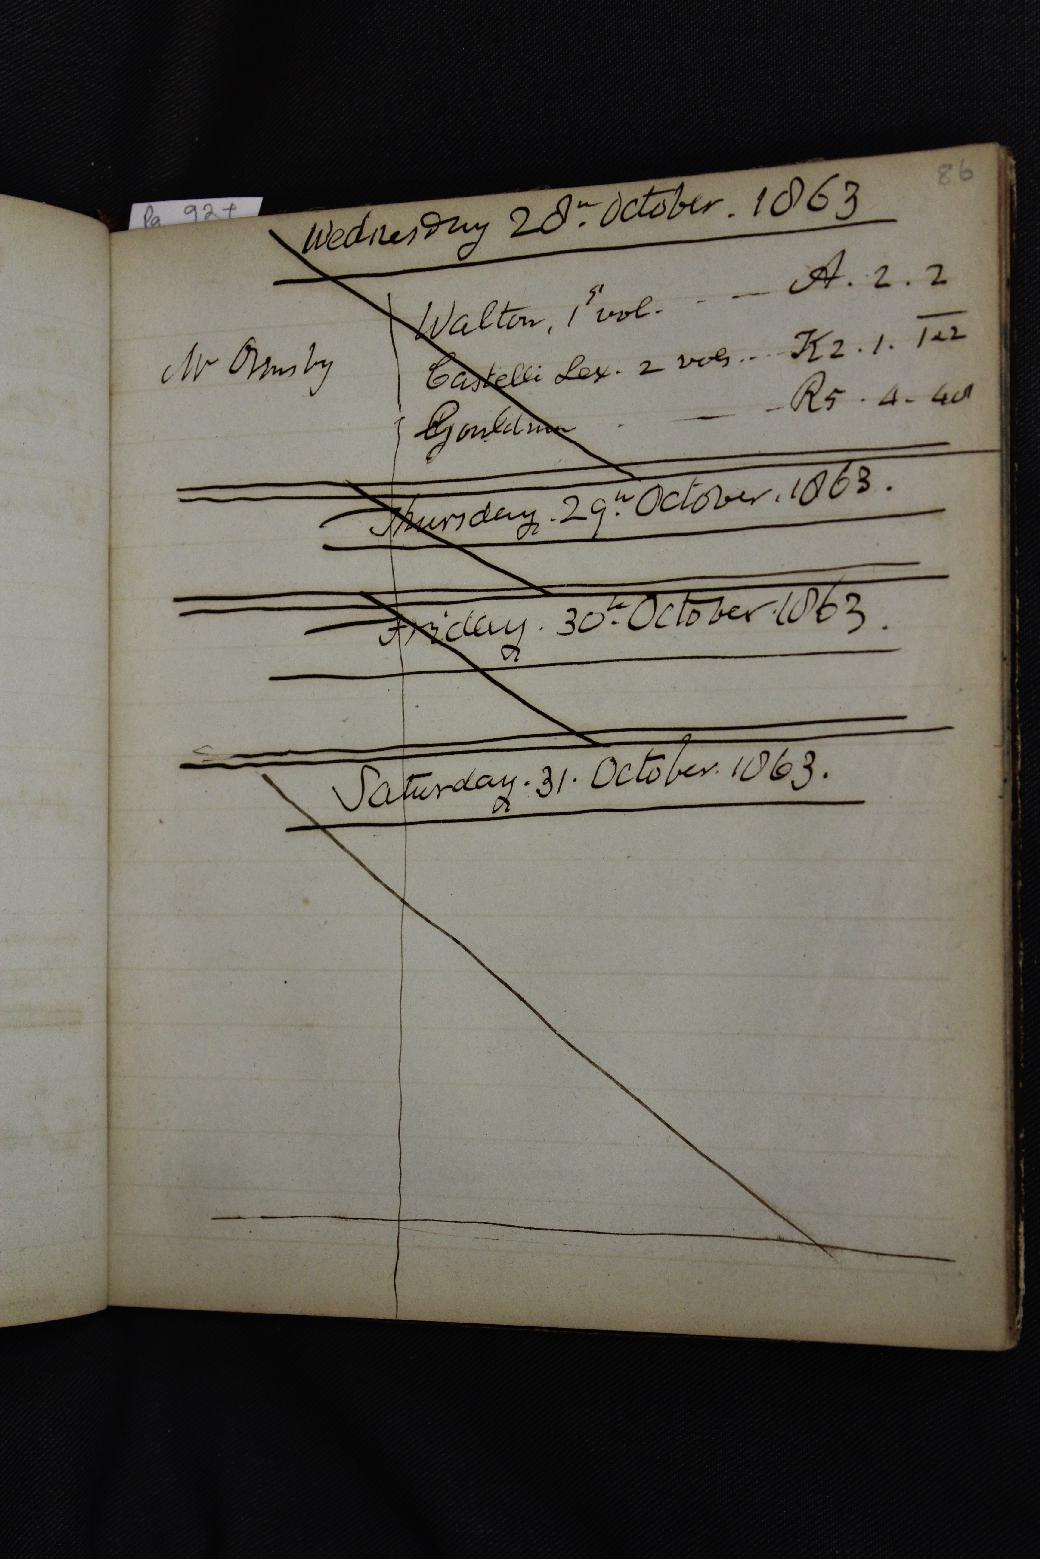 86
Pg 92+
Wednesday 28th October. 1863
Walton, 1st vol. - — A. 2. 2
Mr Ormsby
Castelli Lex. 2 vols... K2. 1. 1+2
Gouldman . — - R5. 4. 40
Thursday. 29th October. 1863.
Friday. 30th October. 1863.
Saturday. 31. October. 1863.